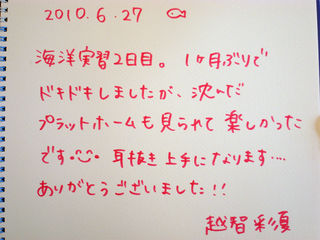 2010.6.27
海洋実習2日目。1ヶ月ぶりで
ドキドキしましたが、沈んだ
プラットホームも見られて楽しかった
です。耳抜き上手になります....
ありがとうございました!!
越智彩須